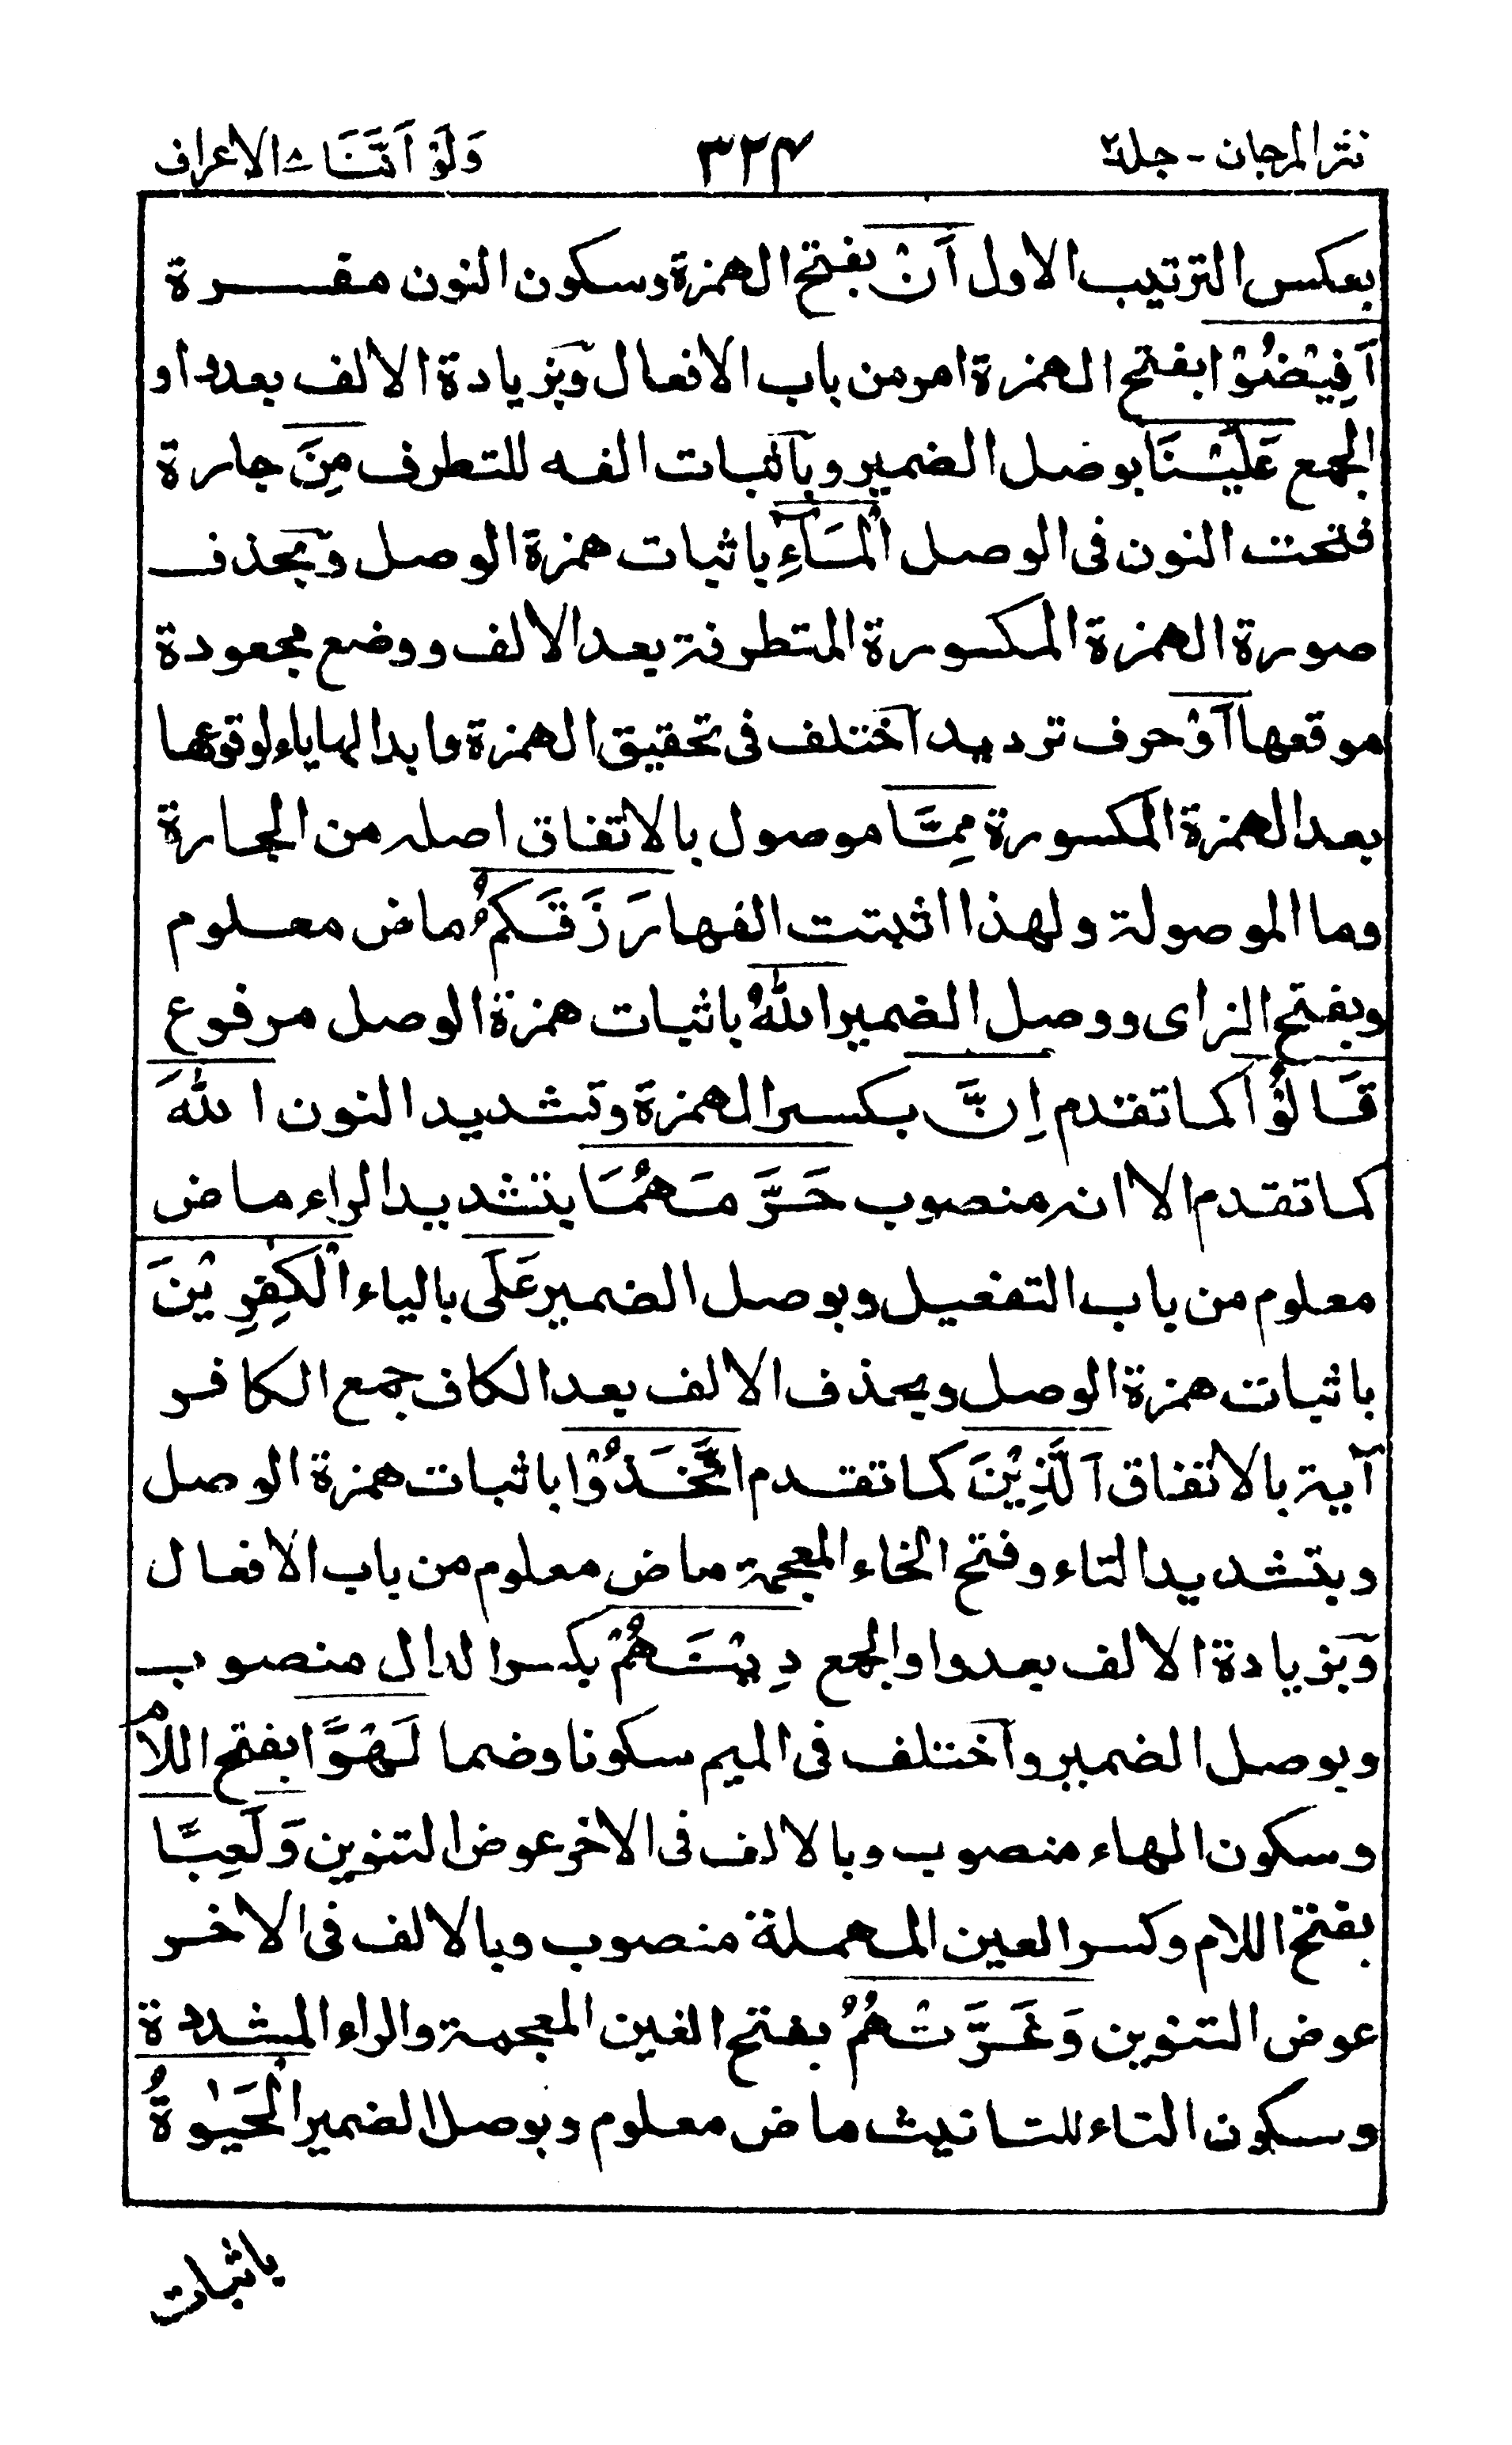 نثر المرجان - جلد٢
٣٢٤
وَلَوْ اَنَّنَا ٨ الاعراف
بعكس الترتيب الاول اَنْ بفتح الهمزة وسكون النون مفسرة
اَفِيْضُوْا بفتح الهمزة امر من باب الافعال وبزيادة الالف بعد واو
الجمع عَلَيْنَا بوصل الضمير وباثبات الفه للتطرف مِنَ جارة
فتحت النون فى الوصل الْمَآءِ باثبات همزة الوصل وبحذف
صورة الهمزة المكسورة المتطرفة بعد الالف ووضع مجعودة
موقعها اَوْ حرف ترديد اختلف فى تحقيق الهمزة وابدالها ياء لوقوعها
بعد الهمزة المكسورة مِمَّا موصول بالاتفاق اصله من الجارة
وما الموصولة ولهذا اثبتت الفها رَزَقَكُمُ ماض معلوم
وبفتح الزاى ووصل الضمير اللّٰهُ باثبات همزة الوصل مرفوع
قَالُوْٓا كما تقدم اِنَّ بكسر الهمزة وتشديد النون اللّٰهَ
كما تقدم الا انه منصوب حَرَّمَهُمَا بتشديد الراء ماض
معلوم من باب التفعيل وبوصل الضمير عَلَى بالياء الْكٰفِرِيْنَ
باثبات همزة الوصل وبحذف الالف بعد الكاف جمع الكافر
آية بالاتفاق اَلَّذِيْنَ كما تقدم اتَّخَذُوْا باثبات همزة الوصل
وبتشديد التاء وفتح الخاء المعجمة ماض معلوم من باب الافعال
وبزيادة الالف بعد واو الجمع دِيْنَهُمْ بكسر الدال منصوب
وبوصل الضمير واختلف فى الميم سكونا وضما لَهْوًا بفتح اللام
وسكون الهاء منصوب وبالالف فى الاخر عوض التنوين وَلَعِبًا
بفتح اللام وكسر العين المهملة منصوب وبالالف فى الاخر
عوض التنوين وَغَرَّتْهُمُ بفتح الغين المعجمة والراء المشددة
وسكون التاء للتانيث ماض معلوم وبوصل الضمير الْحَيٰوةُ
باثبات